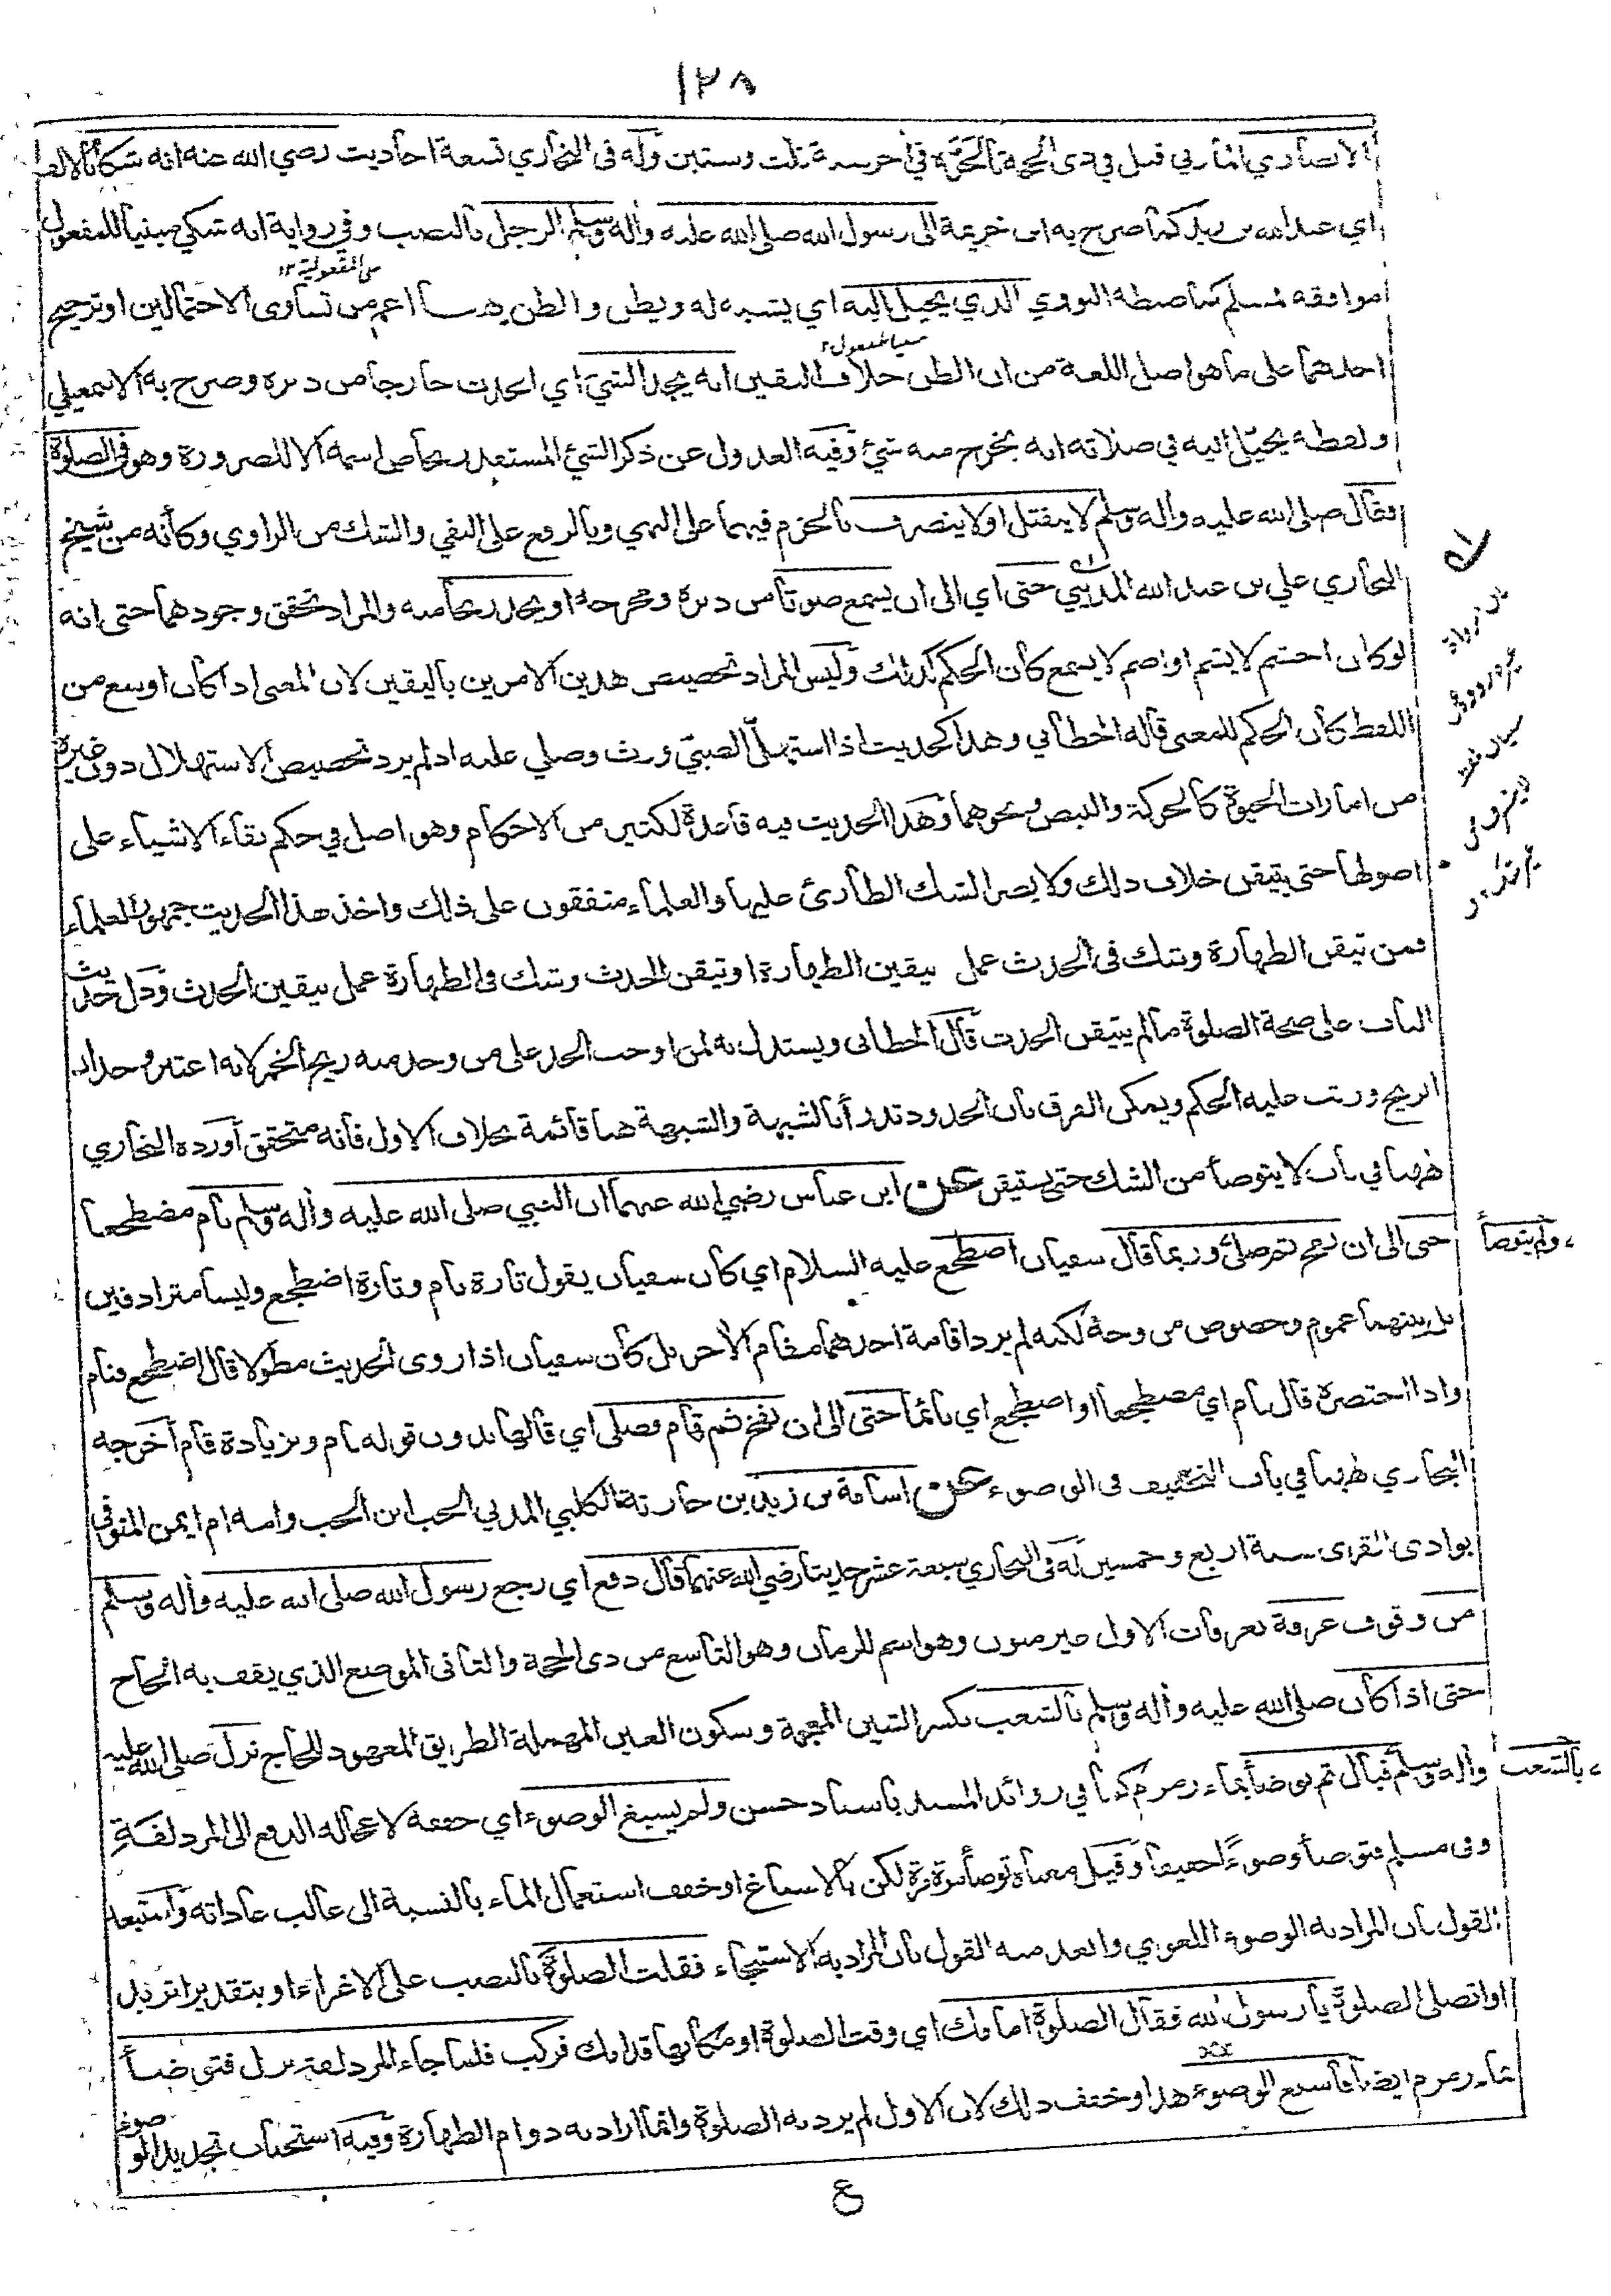 ١٢٨
الانصاري المازني قتل في ذي الحجة بالحرة في آخر سنة ثلث وستين وله في البخاري تسعة احاديث رضي الله عنه انه شكا بالالف
اي عبد الله بن زيد كما صرح به ابن خزيمة الى رسول الله صلى الله عليه وآله وسلم الرجل بالنصب وفي رواية انه شكي مبنيا للمفعول
على المفعولية ١٢
موافقة لمسلم كما ضبطه النووي الذي يخيل اليه اي يشبه له ويظن والظن هنا اعم من تساوى الاحتمالين او ترجيح
مبنيا للمفعول
احدهما على ما هو اصل اللغة من ان الظن خلاف اليقين انه يجد الشيئ اي الحدث خارجا من دبره وصرح به الاسمعيلي
ولفظه يخيل اليه في صلاته انه يخرج منه شئ وفيه العدول عن ذكر الشئ المستقذر بخاص اسمه الا للضرورة وهو في الصلوة
فقال صلى الله عليه وآله وسلم لا ينفتل او لا ينصرف بالجزم فيهما على النهي وبالرفع على النفي والشك من الراوي وكأنه من شيخ
البخاري علي بن عبد الله المديني حتى اي الى ان يسمع صوتا من دبره وخرجه او يجد ريحا منه والمراد تحقق وجودهما حتى انه
لو كان اخشم لا يشم او اصم لا يسمع كان الحكم كذلك وليس المراد تخصيص هذين الامرين باليقين لان المعنى اذا كان اوسع من
اللفظ كان الحكم للمعنى قاله الخطابي وهذا كحديث اذا استهل الصبي ورث وصلي عليه اذ لم يرد تخصيص الاستهلال دون غيره
من امارات الحيوة كالحركة والنبض ونحوهما وهذا الحديث فيه قاعدة لكثير من الاحكام وهو اصل في حكم بقاء الاشياء على
اصولها حتى يتيقن خلاف ذلك ولا يضر الشك الطارئ عليها والعلماء متفقون على ذلك واخذ هذا الحديث جمهور العلماء
فمن تيقن الطهارة وشك في الحدث عمل بيقين الطهارة او تيقن الحدث وشك في الطهارة عمل بيقين الحدث ودل حديث
الباب على صحة الصلوة ما لم يتيقن الحدث قال الخطابي ويستدل به لمن اوجب الحد على من وجد منه ريح الخمر لانه اعتبر وجدان
الريح ورتب عليه الحكم ويمكن الفرق بان الحدود تدرأ بالشبهة والشبهة هنا قائمة بخلاف الاول فانه متحقق أورده البخاري
ههنا في باب لا يتوضأ من الشك حتى يستيقن عن ابن عباس رضي الله عنهما ان النبي صلى الله عليه وآله وسلم نام مضطجعا
حتى الى ان نفخ ثم صلى وربما قال سفيان اضطجع عليه السلام اي كان سفيان يقول تارة نام وتارة اضطجع وليسا مترادفين
ولم يتوضأ
بل بينهما عموم وخصوص من وجه لكنه لم يرد اقامة احدهما مقام الآخر بل كان سفيان اذا روى الحديث مطولا قال اضطجع فنام
واذا اختصره قال نام اي مضطجعا او اضطجع اي نائما حتى الى ان نفخ ثم قام فصلى اي قالها بدون قوله نام وبزيادة قام أخرجه
البخاري ههنا في باب التخفيف في الوضوء عن اسامة بن زيد بن حارثة الكلبي المدني الحب ابن الحب وامه ام ايمن المتوفى
بوادي القرى سنة اربع وخمسين له في البخاري سبعة عشر حديثا رضي الله عنهما قال دفع اي رجع رسول الله صلى الله عليه وآله وسلم
من وقوف عرفة بعرفات الاول غير منون وهو اسم للزمان وهو التاسع من ذي الحجة والثاني الموضع الذي يقف به الحاج
حتى اذا كان صلى الله عليه وآله وسلم بالشعب بكسر الشين المعجمة وسكون العين المهملة الطريق المعهود للحاج نزل صلى الله عليه
وآله وسلم فبال ثم توضأ بماء زمزم كما في زوائد المسند باسناد حسن ولم يسبغ الوضوء اي خففه لاعجاله الدفع الى المزدلفة
بالشعب
وفي مسلم فتوضأ وضوءا خفيفا وقيل معناه توضأ مرة مرة لكن بالاسباغ او خفف استعمال الماء بالنسبة الى غالب عاداته واستبعد
القول بان المراد به الوضوء اللغوي وابعد منه القول بان المراد به الاستنجاء فقلت الصلوة بالنصب على الاغراء او بتقدير اتريد
او اتصلي الصلوة يا رسول الله فقال الصلوة امامك اي وقت الصلوة او مكانها قدامك فركب فلما جاء المزدلفة نزل فتوضأ
بماء زمزم ايضا فاسبغ الوضوء هذا وخفف ذلك لان الاول لم يرد به الصلوة وانما اراد به دوام الطهارة وفيه استحباب تجديد الوضوء
ع